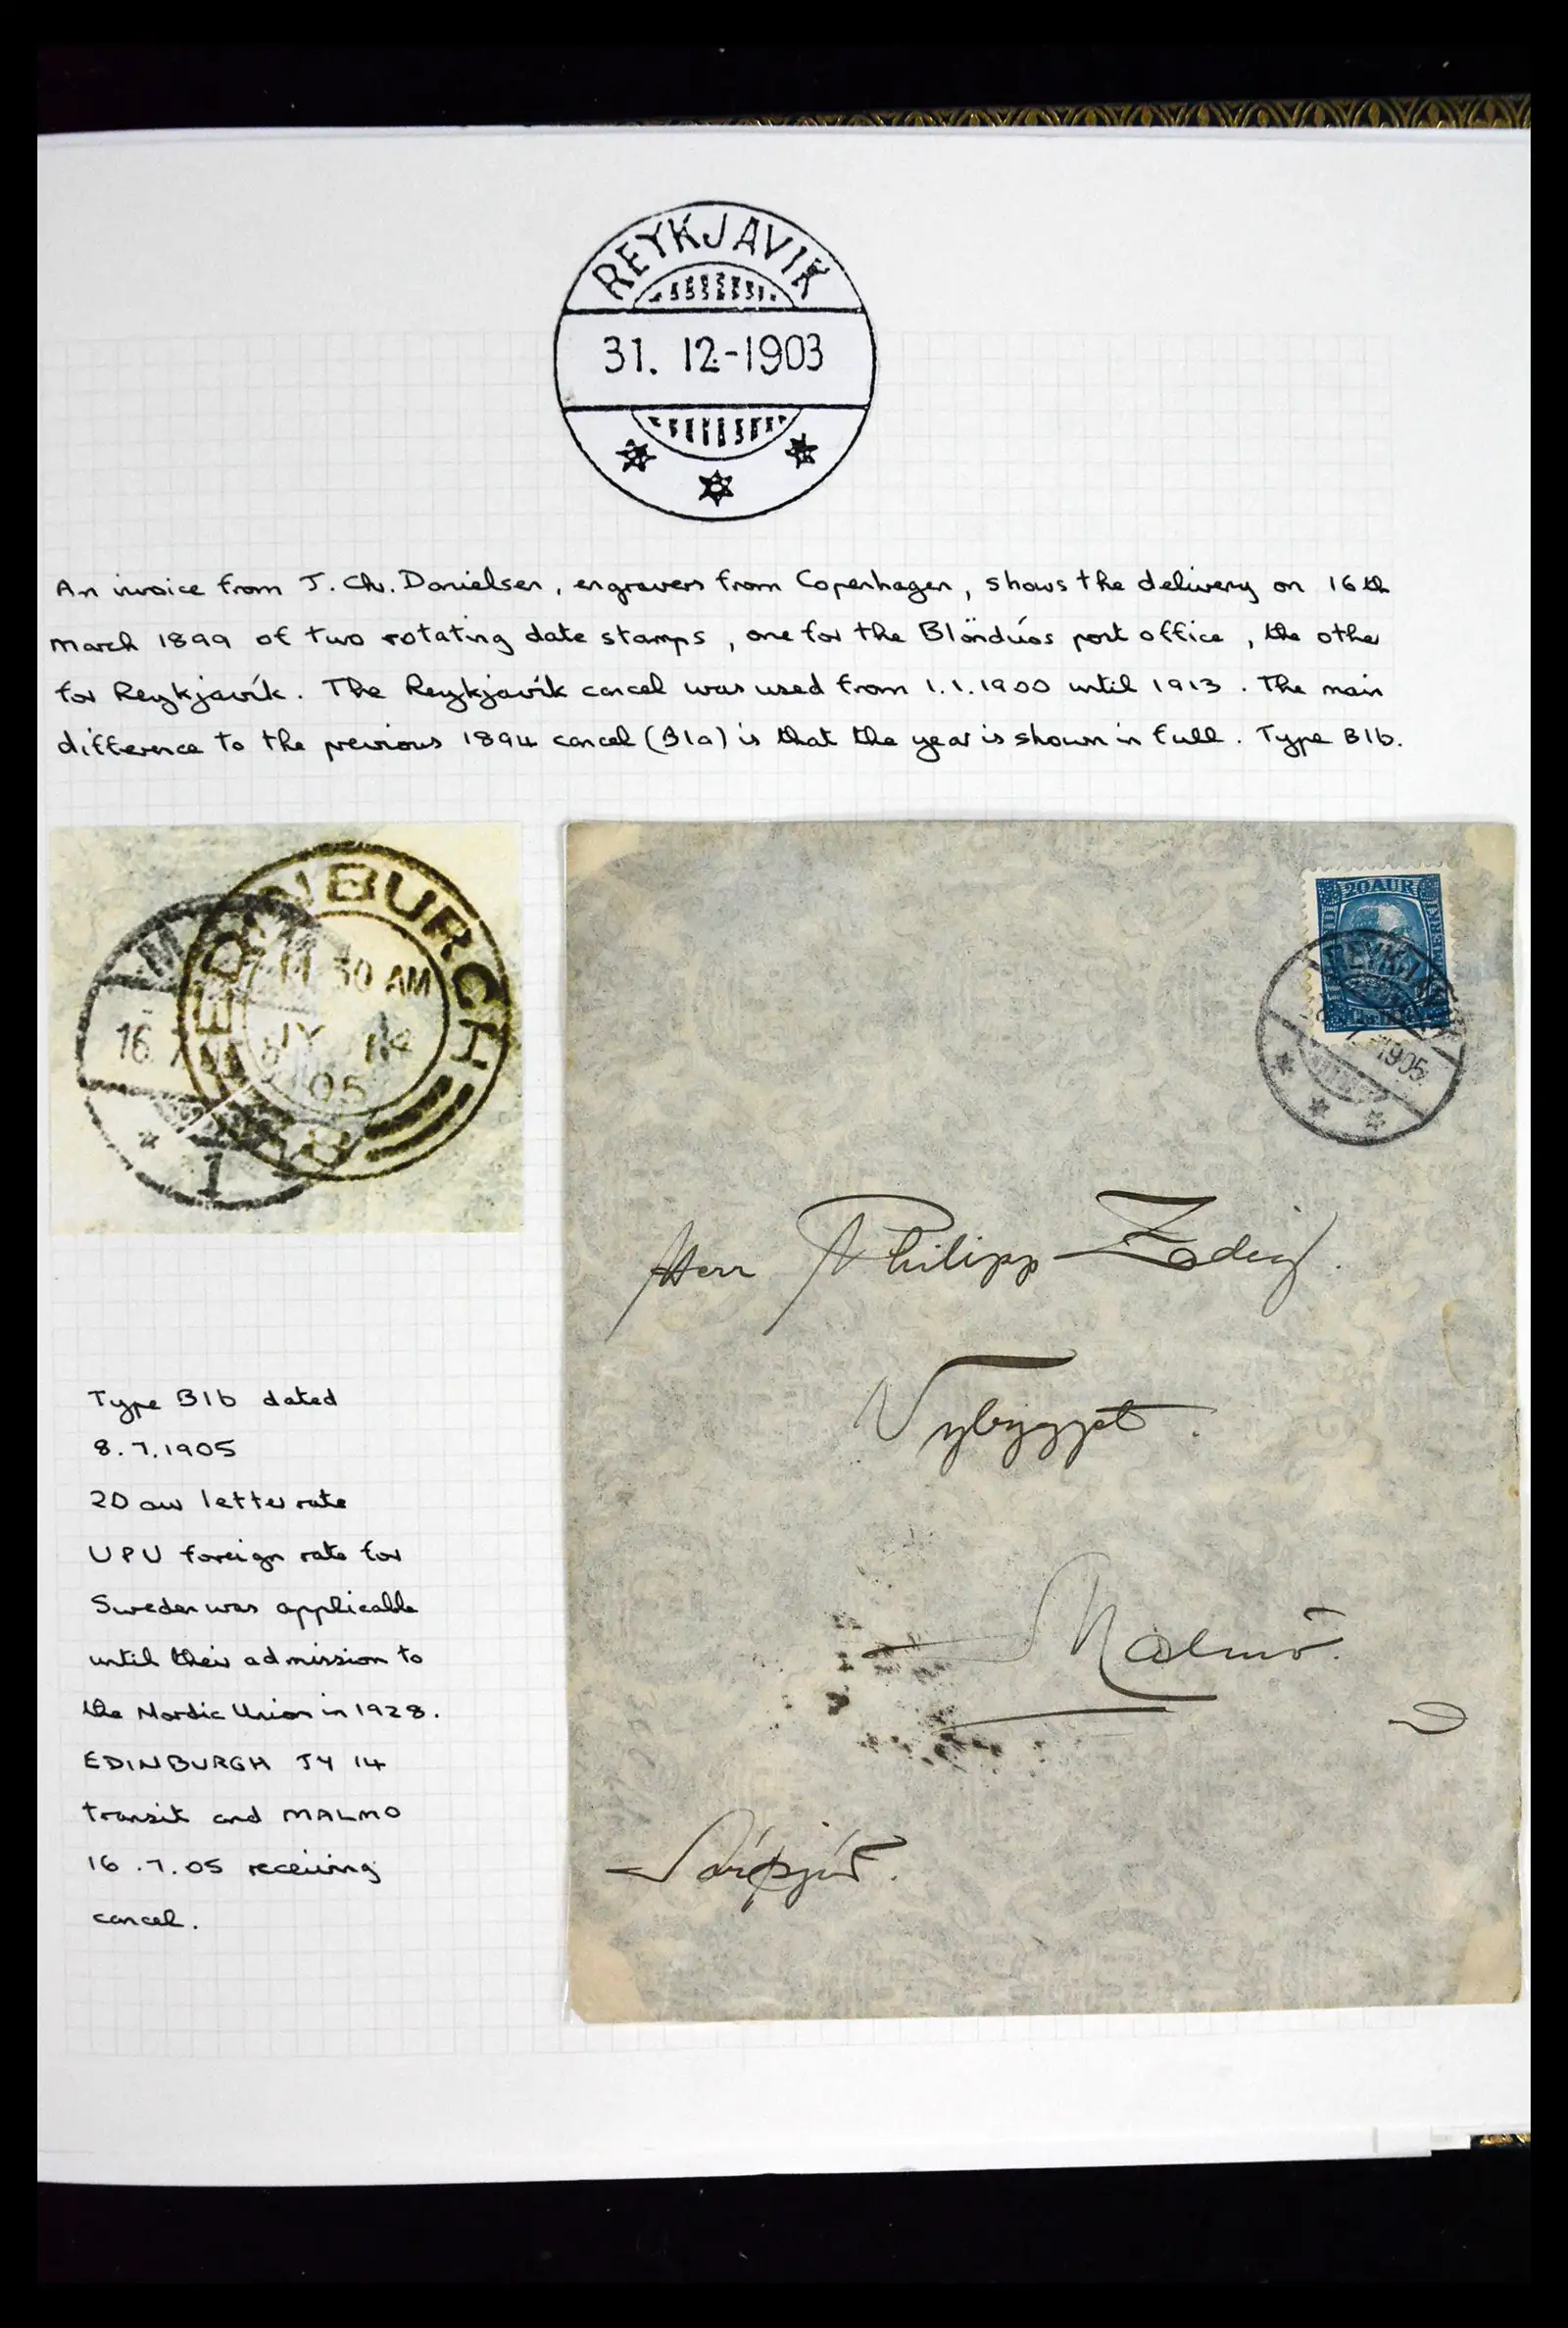 REYKJAVIK
31. 12-1903
An invoice from J. Chr. Danielsen, engravers from Copenhagen, shows the delivery on 16th
March 1899 of two rotating date stamps, one for the Blönduós post office, the other
for Reykjavík. The Reykjavík cancel was used from 1.1.1900 until 1913. The main
difference to the previous 1894 cancel (B1a) is that the year is shown in full. Type B1b.
EDINBURGH
11 30 AM
JY 14
05
16
1
20 AUR
REYKJAV
1905
Herr Philipp
Malmö.
Type B1b dated
8.7.1905
20 aur letter rate
UPU foreign rate for
Sweden was applicable
until their admission to
the Nordic Union in 1928.
EDINBURGH JY 14
transit and MALMO
16.7.05 receiving
cancel.